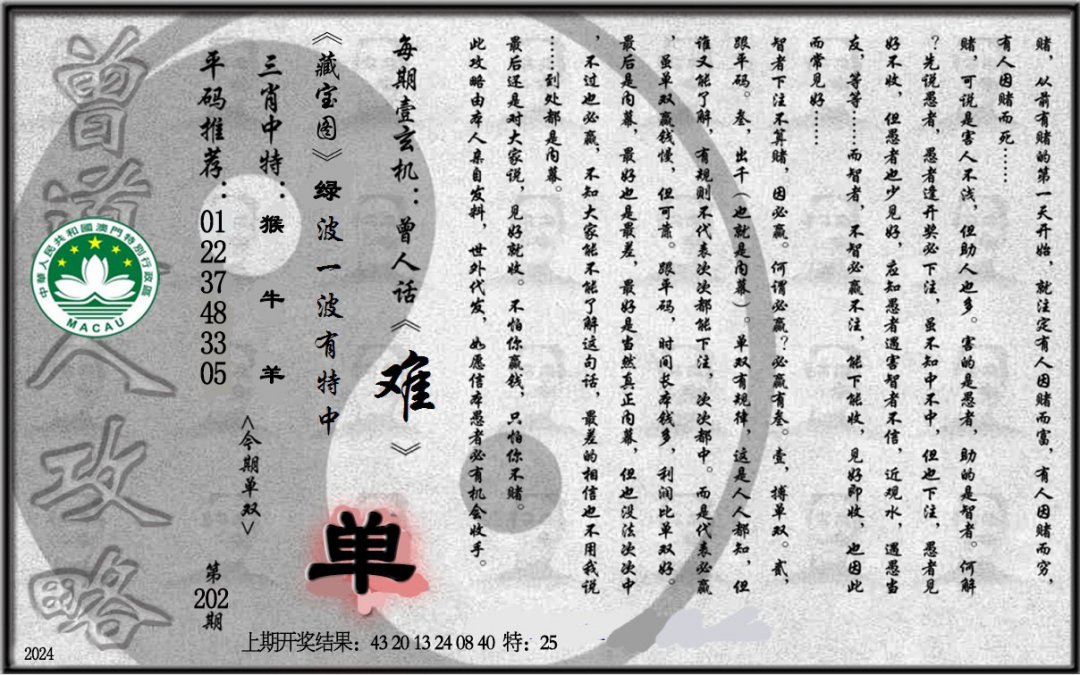 赌，从前有赌的第一天开始，就注定有人因赌而富，有人因赌而穷，
有人因赌而死……
赌，可说是害人不浅，但助人也多。害的是愚者，助的是智者。何解
？先说愚者，愚者逢开奖必下注，虽不知中不中，但也下注，愚者见
好不收，但愚者也少见好，应知愚者遇害智者不信，近观水，遇愚当
友，等等……而智者，不智必赢不注，能下能收，见好即收，也因此
而常见好……
智者下注不算赌，因必赢。何谓必赢？必赢有叁。壹，搏单双。贰，
跟平码。叁，出千（也就是内幕）。单双有规律，这是人人都知，但
谁又能了解，有规则不代表次次都能下注，次次都中。而是代表必赢
，虽单双赢钱慢，但可靠。跟平码，时间长本钱多，利润比单双好。
最后是内幕，最好也是最差，最好是当然真正内幕，但也没法次次中
，不过也必赢，不知大家能不能了解这句话，最差的相信也不用我说
……到处都是内幕。
最后还是对大家说，见好就收。不怕你赢钱，只怕你不赌。
此攻略由本人亲自发料，世外代发，如愿信本愚者必有机会收手。
每期壹玄机：曾人话《难》
《藏宝图》绿波一波有特中
单
三肖中特：猴 牛 羊
<今期单双>
平码推荐：01 22 37 48 33 05
第202期
曾道人攻略
中華人民共和國澳門特別行政區
MACAU
上期开奖结果：43 20 13 24 08 40 特：25
2024